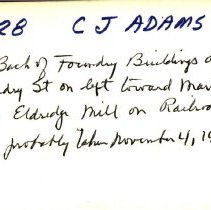 28 C J ADAMS
Back of Foundry Buildings
dry St on left toward Mar
Eldredge Mill on Railroa
probably taken November 4, 19